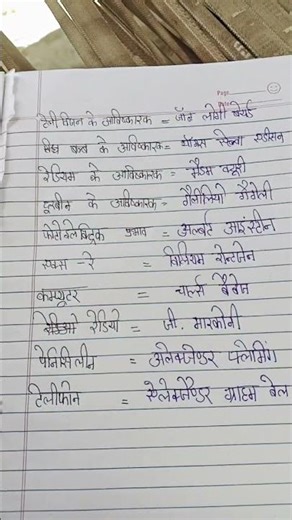 Page
Date
टेलीविजन के आविष्कारक = जॉन लोगी बेयर्ड
विद्युत बल्ब के आविष्कारक = थॉमस एल्वा एडीसन
रेडियम के आविष्कारक = मैडम क्यूरी
दूरबीन के आविष्कारक = गैलीलियो गैलेली
फोटो इलेक्ट्रिक प्रभाव = अल्बर्ट आइंस्टीन
एक्स-रे = विलियम रोन्टजेन
कम्प्यूटर = चार्ल्स बैबेज
रेडियो = जी. मारकोनी
पेनिसिलीन = अलेक्जेण्डर फ्लेमिंग
टेलीफोन = एलेक्जेण्डर ग्राहम बेल